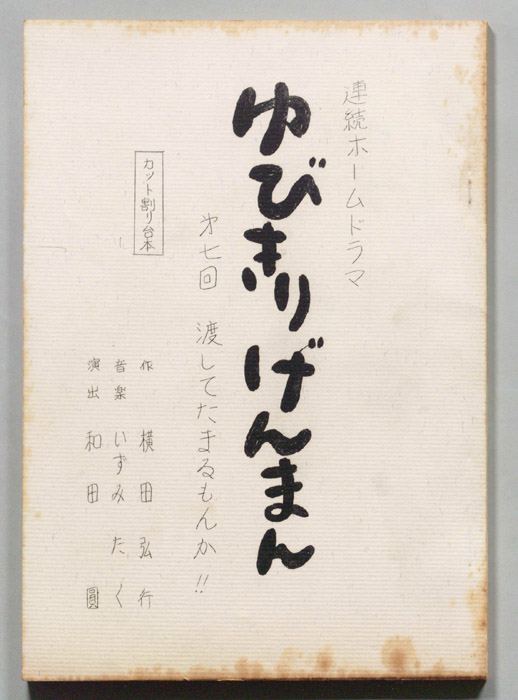 連続ホームドラマ
ゆびきりげんまん
第七回 渡してたまるもんか!!
カット割り台本
作 横田弘行
音楽 いずみたく
演出 和田 圓